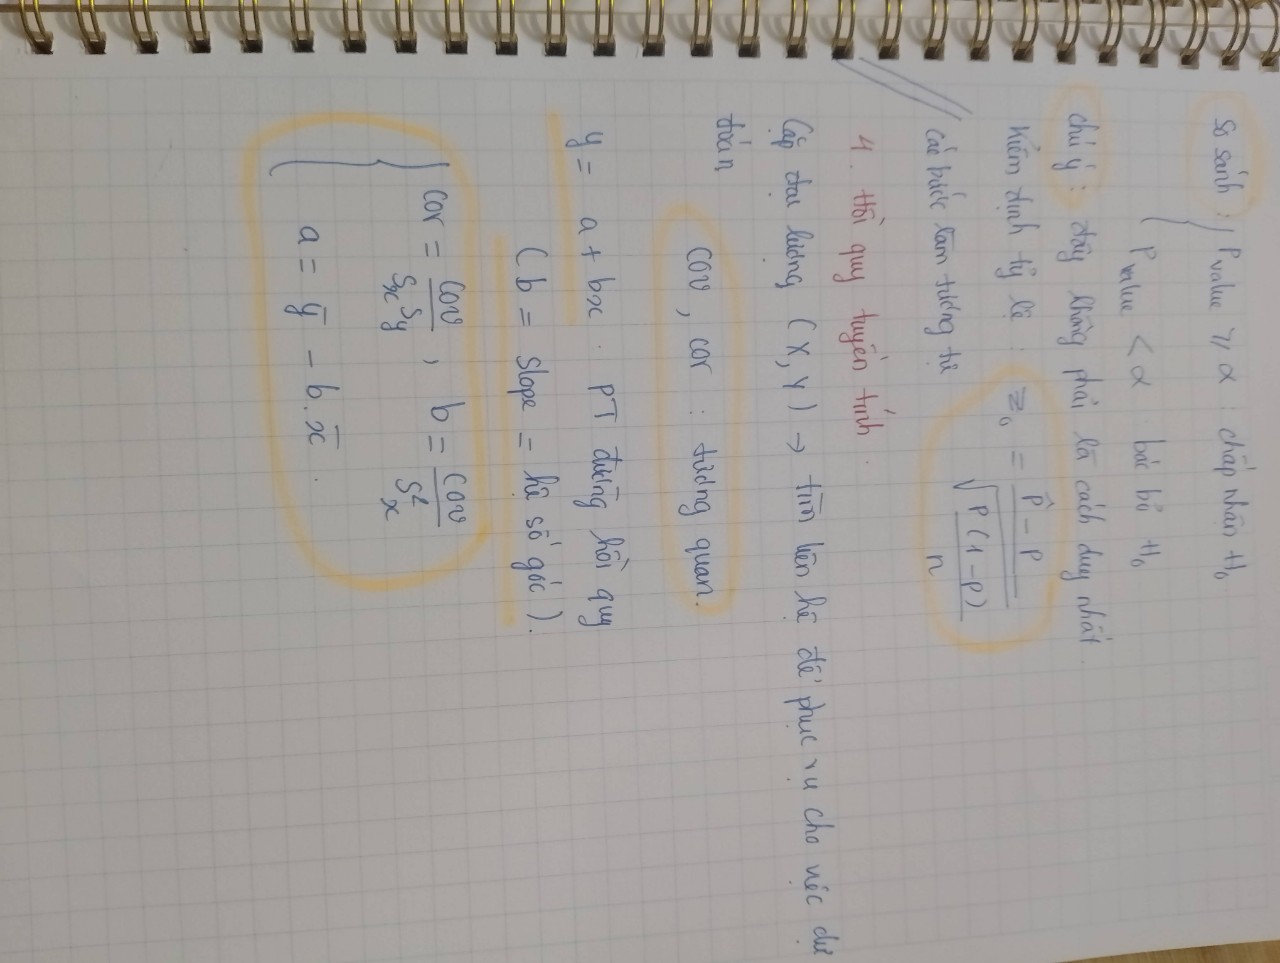 So sánh : { Pvalue ≥ α : chấp nhận H₀
Pvalue < α : bác bỏ H₀
chú ý : đây không phải là cách duy nhất
Kiểm định tỷ lệ : z₀ = (p̂ - p) / √(p(1-p)/n)
các bước làm tương tự
4. Hồi quy tuyến tính.
Cặp đại lượng (X, Y) → tìm liên hệ để phục vụ cho việc dự
đoán
cov, cor : tương quan.
y = a + bx . PT đường hồi quy
( b = slope = hệ số góc ).
{ cor = cov / (Sx Sy) , b = cov / S²x
a = ȳ - b.x̄ .